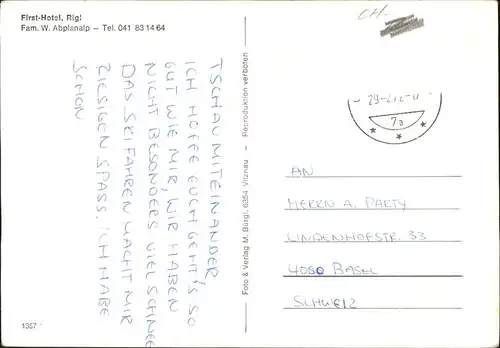 First-Hotel, Rigi
Fam. W. Abplanalp – Tel. 041 83 14 64
TSCHAU MITEINANDER
ICH HOFFE EUCH GEHT'S SO
GUT WIE MIR, WIR HABEN
NICHT BESONDERS VIEL SCHNEE
DAS SKIFAHREN MACHT MIR
RIESIGEN SPASS. ICH HABE
SCHON
Foto & Verlag M. Bürgi, 6354 Vitznau – Reproduktion verboten
CH-
7a
AN
HERRN A. PARTY
LINDENHOFSTR. 33
4050 BASEL
SCHWEIZ
1357